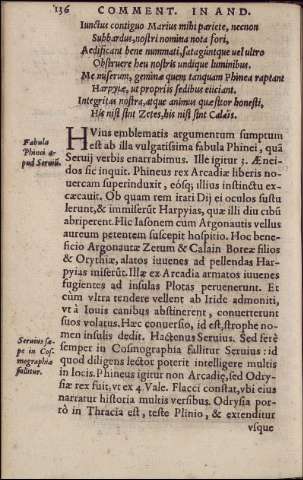 136 COMMENT. IN AND.
Iunctus contiguo Marius mihi pariete, necnon
Subbardus, nostri nomina nota fori,
Aedificant bene nummati, satagúntque vel vltro
Obstruere heu nostris undique luminibus.
Me miserum, geminæ quem tanquam Phinea raptant
Harpyiæ, ut propriis sedibus eiiciant.
Integritas nostra, atque animus quæsitor honesti,
His nisi sint Zetes, his nisi sint Calaïs.
Fabula
Phinei a-
pud Seruiũ.
HVius emblematis argumentum sumptum
est ab illa vulgatissima fabula Phinei, quã
Seruij verbis enarrabimus. Ille igitur 3. Ænei-
dos sic inquit. Phineus rex Arcadiæ liberis no-
uercam superinduxit, eósq; illius instinctu ex-
cæcauit. Ob quam rem irati Dij ei oculos sustu
lerunt, & immiserũt Harpyias, quæ illi diu cibũ
abriperent. Hic Iasonem cum Argonautis vellus
aureum petentem suscepit hospitio. Hoc bene-
ficio Argonautæ Zetum & Calain Boreæ filios
& Orythiæ, alatos iuuenes ad pellendas Har-
pyias miserũt. Illæ ex Arcadia armatos iuuenes
fugientes ad insulas Plotas peruenerunt. Et
cùm vltra tendere vellent ab Iride admoniti,
vt à Iouis canibus abstinerent, conuerterunt
suos volatus. Hæc conuersio, id est, strophe no-
men insulis dedit. Hactenus Seruius. Sed ferè
Seruius sæ-
pe in Cos-
mographia
fallitur.
semper in Cosmographia fallitur Seruius: id
quod diligens lector poterit intelligere multis
in locis. Phineus igitur non Arcadię, sed Odry-
siæ rex fuit, vt ex 4. Vale. Flacci constat, vbi eius
narratur historia multis versibus. Odrysia por-
rò in Thracia est, teste Plinio, & extenditur
vsque